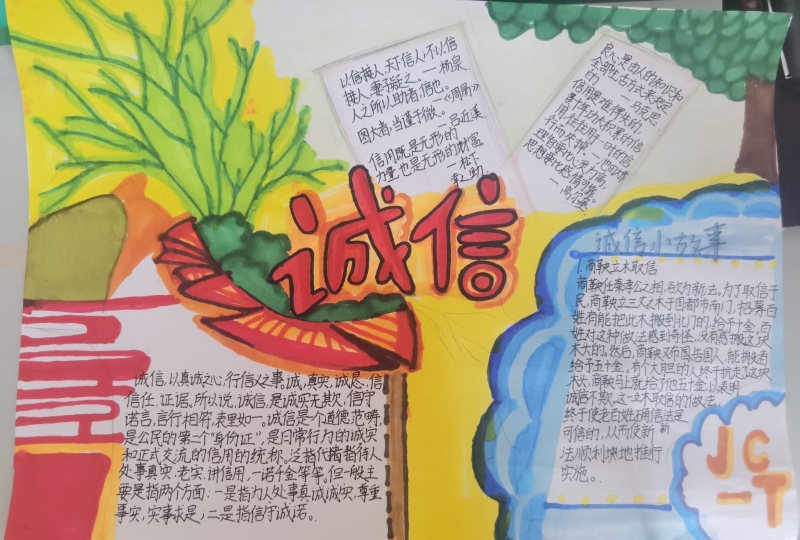 以信接人，天下信人；不以信
接人，妻子疑之。——杨泉
人之所以助者，信也。——《周易》
图大者，当谨于微。——吕近溪
信用既是无形的
力量，也是无形的财富。
——松下
幸之助
良心是由人的知识和
全部生活方式来决定
的。——马克思
信用是难得失的，
费十年功夫积累的信
用，往往
诚信
诚信小故事
1.商鞅立木取信
商鞅任秦孝公之相，欲为新法。为了取信于
民，商鞅立三丈之木于国都市南门，招募百
姓有能把此木搬到北门的，给予十金。百
姓对这种做法感到奇怪，没有敢搬这块
木头的。然后，商鞅又布国告国人，能搬者
给予五十金。有个大胆的人终于扛走了这块
木头，商鞅马上就给了他五十金，以表明
诚信不欺。这一立木取信的做法，
终于使老百姓正确信法是
可信的，从而使新
法顺利地推行
实施。
诚信，以真诚之心，行信义之事。诚，真实，诚恳；信
信任，证据。所以说，诚信，是诚实无欺，信守
诺言，言行相符，表里如一。诚信是个道德范畴，
是公民的第二个“身份证”，是日常行为的诚实
和正式交流的信用的统称。泛指待人
处事真实、老实、讲信用，一诺千金等等。但一般主
要是指两个方面：一是指为人处事真诚诚实，尊重
事实，实事求是；二是指信守诚诺。
JC
一T